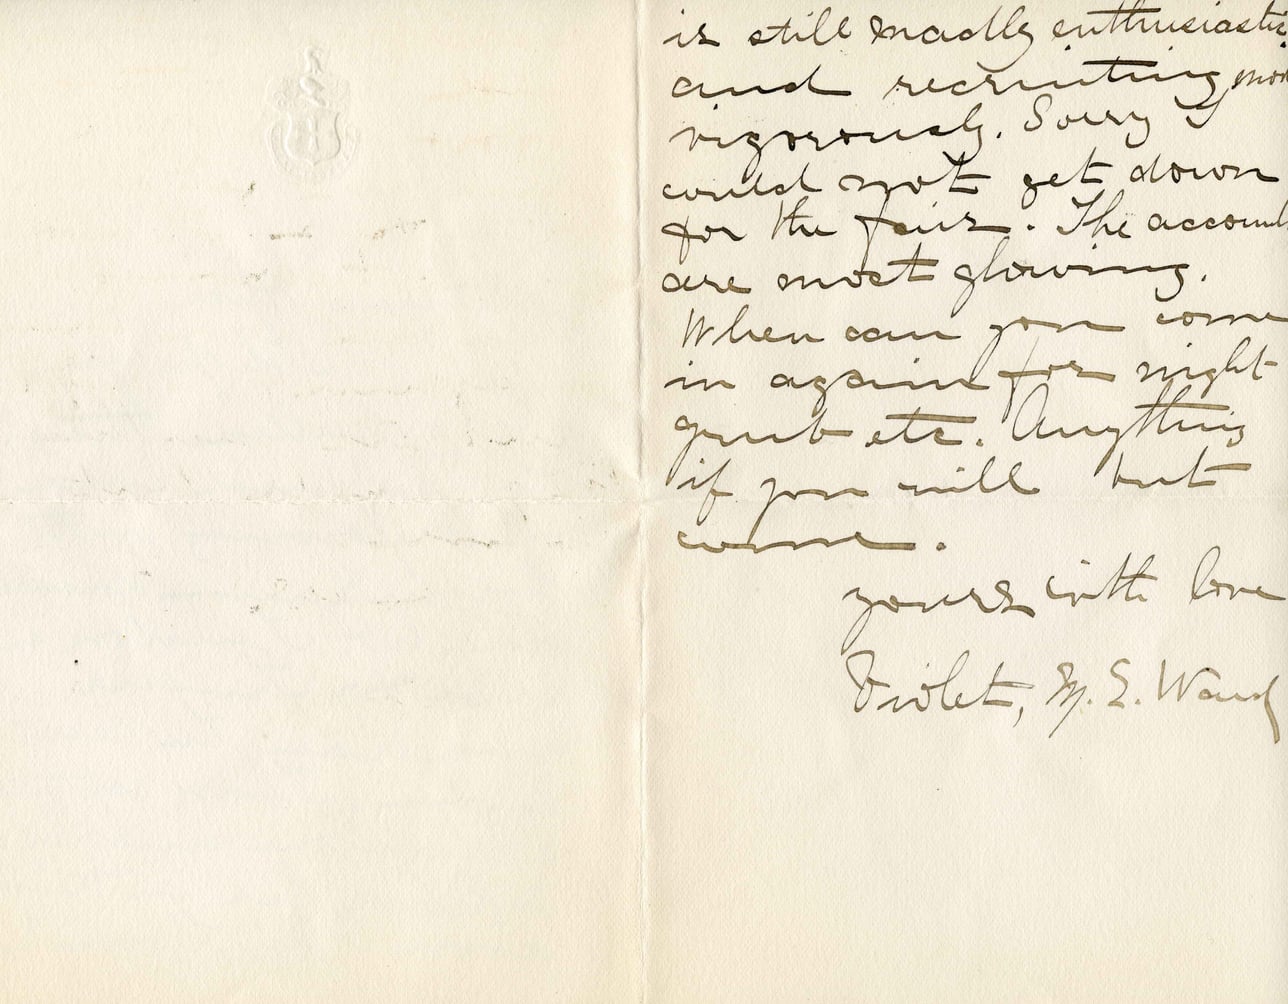 is still madly enthusiastic
and recruiting most
vigorously. Sorry I
could not get down
for the fair. The accounts
are most glowing.
When can you come
in again for night
grub etc. Anything
if you will but
come.
yours with love
Violet, M. E. Ward